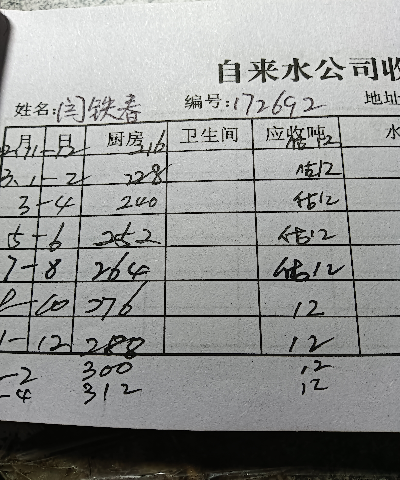 自来水公司收
姓名:闫铁春 编号:172692 地址
月 日 厨房 卫生间 应收吨 水
216 估12
3.1-2 228 估12
3-4 240 估12
5-6 252 估12
7-8 264 估12
10 276 12
1-12 288 12
-2 300 12
-4 312 12